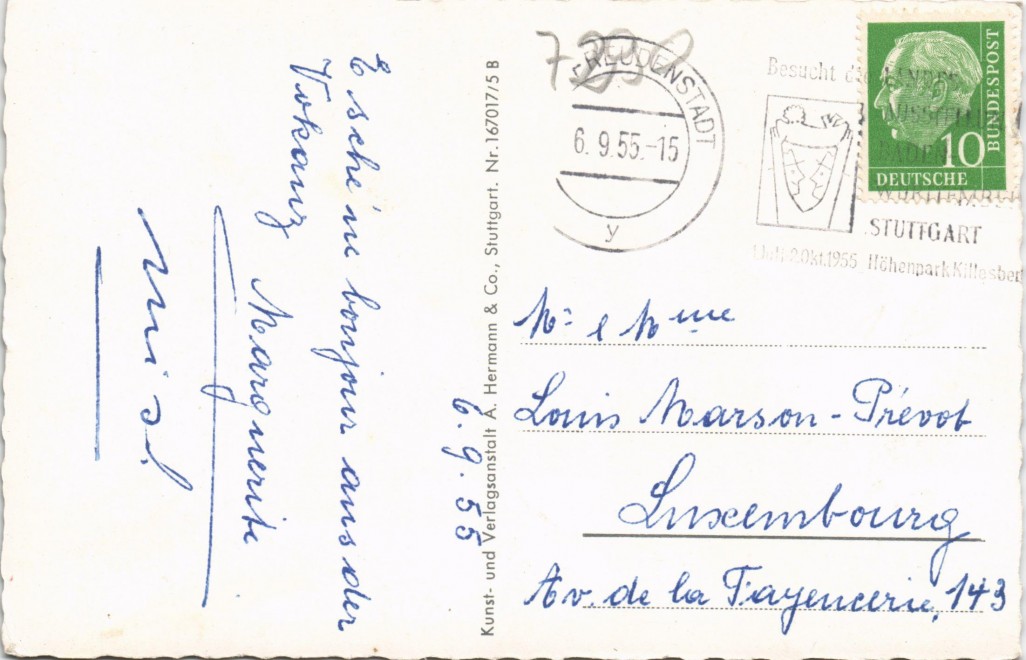 6.9.55
E sche'ne bonjour aus der
Vokanz Marguerite
Kunst- und Verlagsanstalt A. Hermann & Co., Stuttgart. Nr. 167017/5 B
FREUDENSTADT
6.9.55.-15
y
Besucht die LANDES
AUSSTELLUNG
BADEN-
WÜRTTEMBERG
STUTTGART
2.Okt.1955 Höhenpark Killesberg
BUNDESPOST
10
DEUTSCHE
Mr e Mme
Louis Marson-Prévot
Luxembourg
Av. de la Fayencerie, 143